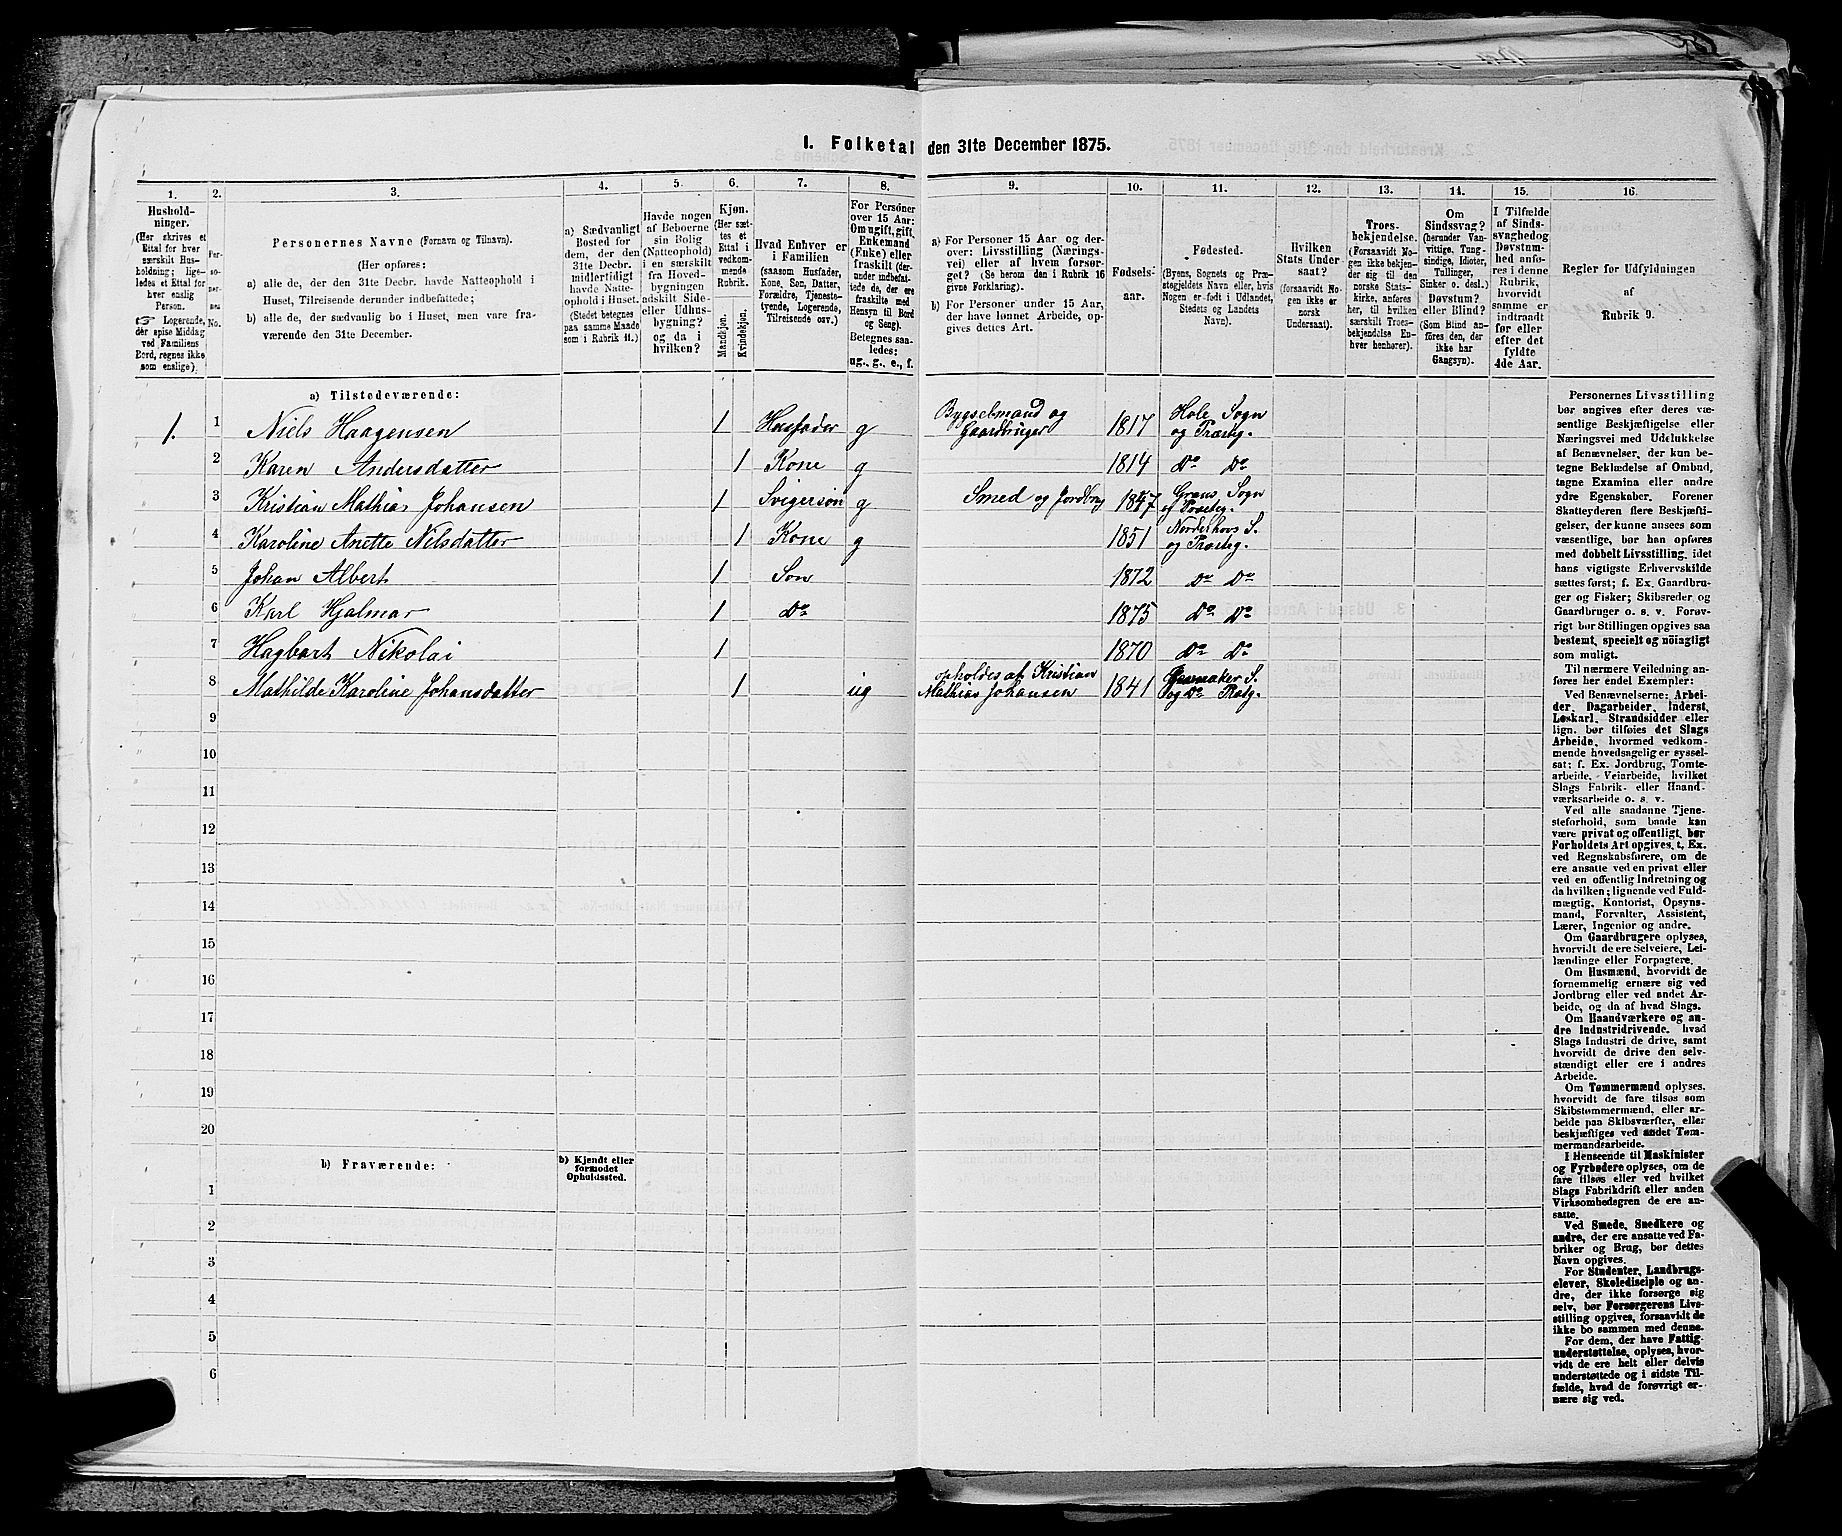 I. Folketal den 31te December 1875.
1. 2. 3. 4. 5. 6. 7. 8. 9. 10. 11. 12. 13. 14. 15. 16.
Hushold-
ninger.
(Her skrives et
Ettal for hver
særskilt Hus-
holdning; lige-
ledes et Ettal for
hver enslig
Person.
☞ Logerende,
der spise Middag
ved Familiens
Bord, regnes ikke
som enslige).
Per-
so-
ner-
nes
No.
Personernes Navne (Fornavn og Tilnavn).
(Her opføres:
a) alle de, der den 31te Decbr. havde Natteophold i
Huset, Tilreisende derunder indbefattede;
b) alle de, der sædvanlig bo i Huset, men vare fra-
værende den 31te December.
a) Sædvanligt
Bosted for
dem, der den
31te Decbr.
midlertidigt
havde Natte-
ophold i Huset.
(Stedet betegnes
paa samme Maade
som i Rubrik 11.)
Havde nogen
af Beboerne
sin Bolig
(Natteophold)
i en særskilt
fra Hoved-
bygningen
adskilt Side-
eller Udhus-
bygning?
og da i
hvilken?
Kjøn.
(Her sæt-
tes et
Ettal i
vedkom-
mende
Rubrik.
Mandkjøn.
Kvindekjøn.
Hvad Enhver er
i Familien
(saasom Husfader,
Kone, Søn, Datter,
Forældre, Tjeneste-
tyende, Logerende,
Tilreisende osv.)
For Personer
over 15 Aar:
Om ugift, gift,
Enkemand
(Enke) eller
fraskilt (der-
under indbefat-
tede de, der ere
fraskilte med
Hensyn til Bord
og Seng).
Betegnes saa-
ledes:
ug., g., e., f.
a) For Personer 15 Aar og der-
over: Livsstilling (Nærings-
vei) eller af hvem forsør-
get? (Se herom den i Rubrik 16
givne Forklaring).
b) For Personer under 15 Aar,
der have lønnet Arbeide, op-
gives dettes Art.
Fødsels-
aar.
Fødested.
(Byens, Sognets og Præ-
stegjeldets Navn eller, hvis
Nogen er født i Udlandet,
Stedets og Landets
Navn).
Hvilken
Stats Under-
saat?
(forsaavidt No-
gen ikke er
norsk
Undersaat).
Troes-
bekjendelse.
(Forsaavidt No-
gen ikke bekjen-
der sig til den
norske Stats-
kirke, anføres
her, til hvilken
særskilt Troes-
bekjendelse En-
hver henhører).
Om
Sindssvag?
(herunder Van-
vittige, Tung-
sindige, Idioter,
Tullinger,
Sinker o. desl.)
Døvstum?
eller Blind?
(Som Blind an-
føres den, der
ikke har
Gangsyn).
I Tilfælde
af Sinds-
svaghed og
Døvstum-
hed anfø-
res i denne
Rubrik,
hvorvidt
samme er
indtraadt
før eller
efter det
fyldte
4de Aar.
Regler for Udfyldningen
af
Rubrik 9.
a) Tilstedeværende:
1. 1 Niels Haagensen 1 Husfader g Bygselmand og Gaardbruger 1817 Hole Sogn og Præsteg.
2 Karen Andersdatter 1 Kone g 1814 Do Do
3 Kristian Mathias Johansen 1 Svigersøn g Smed og Jordbrug 1847 Grans Sogn og Præsteg.
4 Karoline Anette Nilsdatter 1 Kone g 1851 Norderhovs S. og Præsteg.
5 Johan Albert 1 Søn 1872 Do Do
6 Karl Hjalmar 1 Do 1875 Do Do
7 Hagbart Nikolai 1 1870 Do Do
8 Mathilde Karoline Johansdatter 1 ug opholdes af Kristian Mathias Johansen 1841 S. og Do Præstg.
9
10
11
12
13
14
15
16
17
18
19
20
b) Fraværende:
b) Kjendt eller
formodet
Opholdssted.
1
2
3
4
5
6
Personernes Livsstilling
bør angives efter deres væ-
sentlige Beskjæftigelse eller
Næringsvei med Udelukkelse
af Benævnelser, der kun be-
tegne Beklædelse af Ombud,
tagne Examina eller andre
ydre Egenskaber. Forener
Skatteyderen flere Beskjæfti-
gelser, der kunne ansees som
væsentlige, bør han opføres
med dobbelt Livsstilling, idet
hans vigtigste Erhvervskilde
sættes først; f. Ex. Gaardbru-
ger og Fisker; Skibsreder og
Gaardbruger o. s. v. Forøv-
rigt bør Stillingen opgives saa
bestemt, specielt og nöiagtigt
som muligt.
Til nærmere Veiledning an-
føres her endel Exempler:
Ved Benævnelserne: Arbei-
der, Dagarbeider, Inderst,
Løskarl, Strandsidder eller
lign. bør tilføies det Slags
Arbeide, hvormed vedkom-
mende hovedsagelig er syssel-
sat; f. Ex. Jordbrug, Tomte-
arbeide, Veiarbeide, hvilket
Slags Fabrik- eller Haand-
værksarbeide o. s. v.
Ved alle saadanne Tjene-
steforhold, som baade kan
være privat og offentligt, bør
Forholdets Art opgives, t. Ex.
ved Regnskabsførere, om de
ere ansatte ved en privat eller
ved en offentlig Indretning og
da hvilken; lignende ved Fuld-
mægtig, Kontorist, Opsyns-
mand, Forvalter, Assistent,
Lærer, Ingeniør og andre.
Om Gaardbrugere oplyses,
hvorvidt de ere Selveiere, Lei-
lændinge eller Forpagtere.
Om Husmænd, hvorvidt de
fornemmelig ernære sig ved
Jordbrug eller ved andet Ar-
beide, og da af hvad Slags.
Om Haandværkere og an-
dre Industridrivende, hvad
Slags Industri de drive, samt
hvorvidt de drive den selv-
stændigt eller ere i andres
Arbeide.
Om Tømmermænd oplyses,
hvorvidt de fare tilsøs som
Skibstømmermænd, eller ar-
beide paa Skibsværfter, eller
beskjæftiges ved andet Tøm-
mermandsarbeide.
I Henseende til Maskinister
og Fyrbødere oplyses, om de
fare tilsøs eller ved hvilket
Slags Fabrikdrift eller anden
Virksomhedsgren de ere an-
satte.
Ved Smede, Snedkere og
andre, der ere ansatte ved Fa-
briker og Brug, bør dettes
Navn opgives.
For Studenter, Landbrugs-
elever, Skoledisciple og an-
dre, der ikke forsørge sig
selv, bør Forsørgerens Livs-
stilling opgives, forsaavidt de
ikke bo sammen med denne.
For dem, der have Fattig-
understøttelse, oplyses, hvor-
vidt de ere helt eller delvis
understøttede og i sidste Til-
fælde, hvad de forøvrigt er-
nære sig ved.